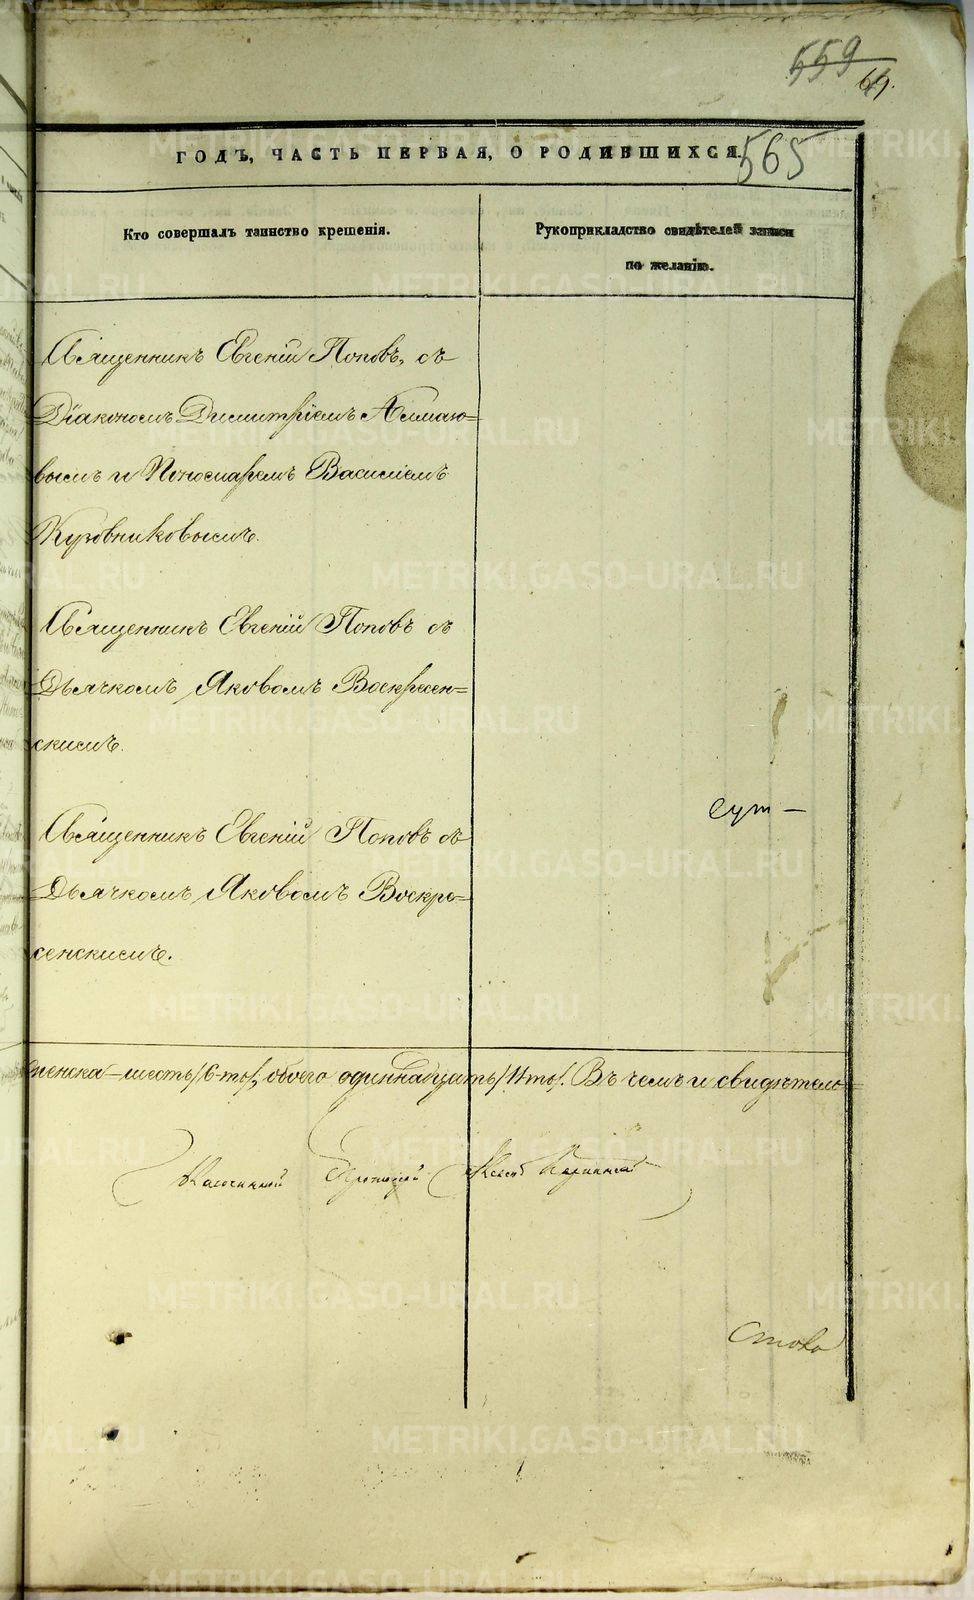 559
64.
565
ГОДЪ, ЧАСТЬ ПЕРВАЯ, О РОДИВШИХСЯ.
Кто совершалъ таинство крещенія.
Рукоприкладство свидѣтелей записи
по желанію.
Священникъ Евгеній Поповъ, съ
Діакономъ Димитріемъ
вымъ и Пономаремъ Василіемъ
Священникъ Евгеній Поповъ съ
Дьячкомъ Яковомъ Воскресен=
скимъ.
сут-
Священникъ Евгеній Поповъ съ
Дьячкомъ Яковомъ Воскре=
сенскимъ.
женска - шесть /6-ть/, обоего одиннадцать /11ть/. Въ чемъ и свидѣтель=
Протоіерей
ство
METRIKI.GASO-URAL.RU